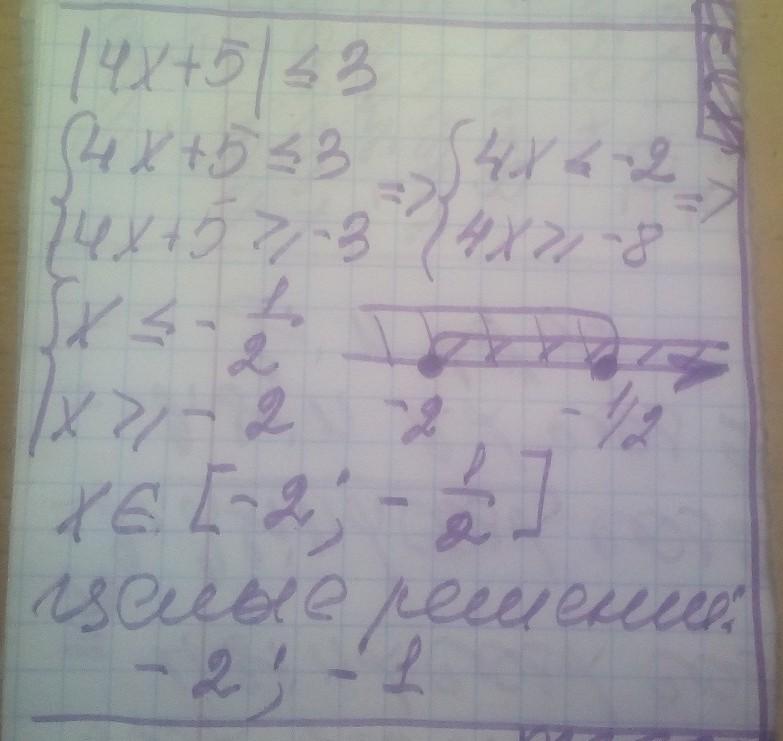 |4x+5| ≤ 3
{4x+5 ≤ 3 => {4x ≤ -2 =>
{4x+5 ≥ -3 {4x ≥ -8
{x ≤ -1/2
{x ≥ -2 -2 -1/2
x ∈ [-2; -1/2]
целые решения:
-2; -1